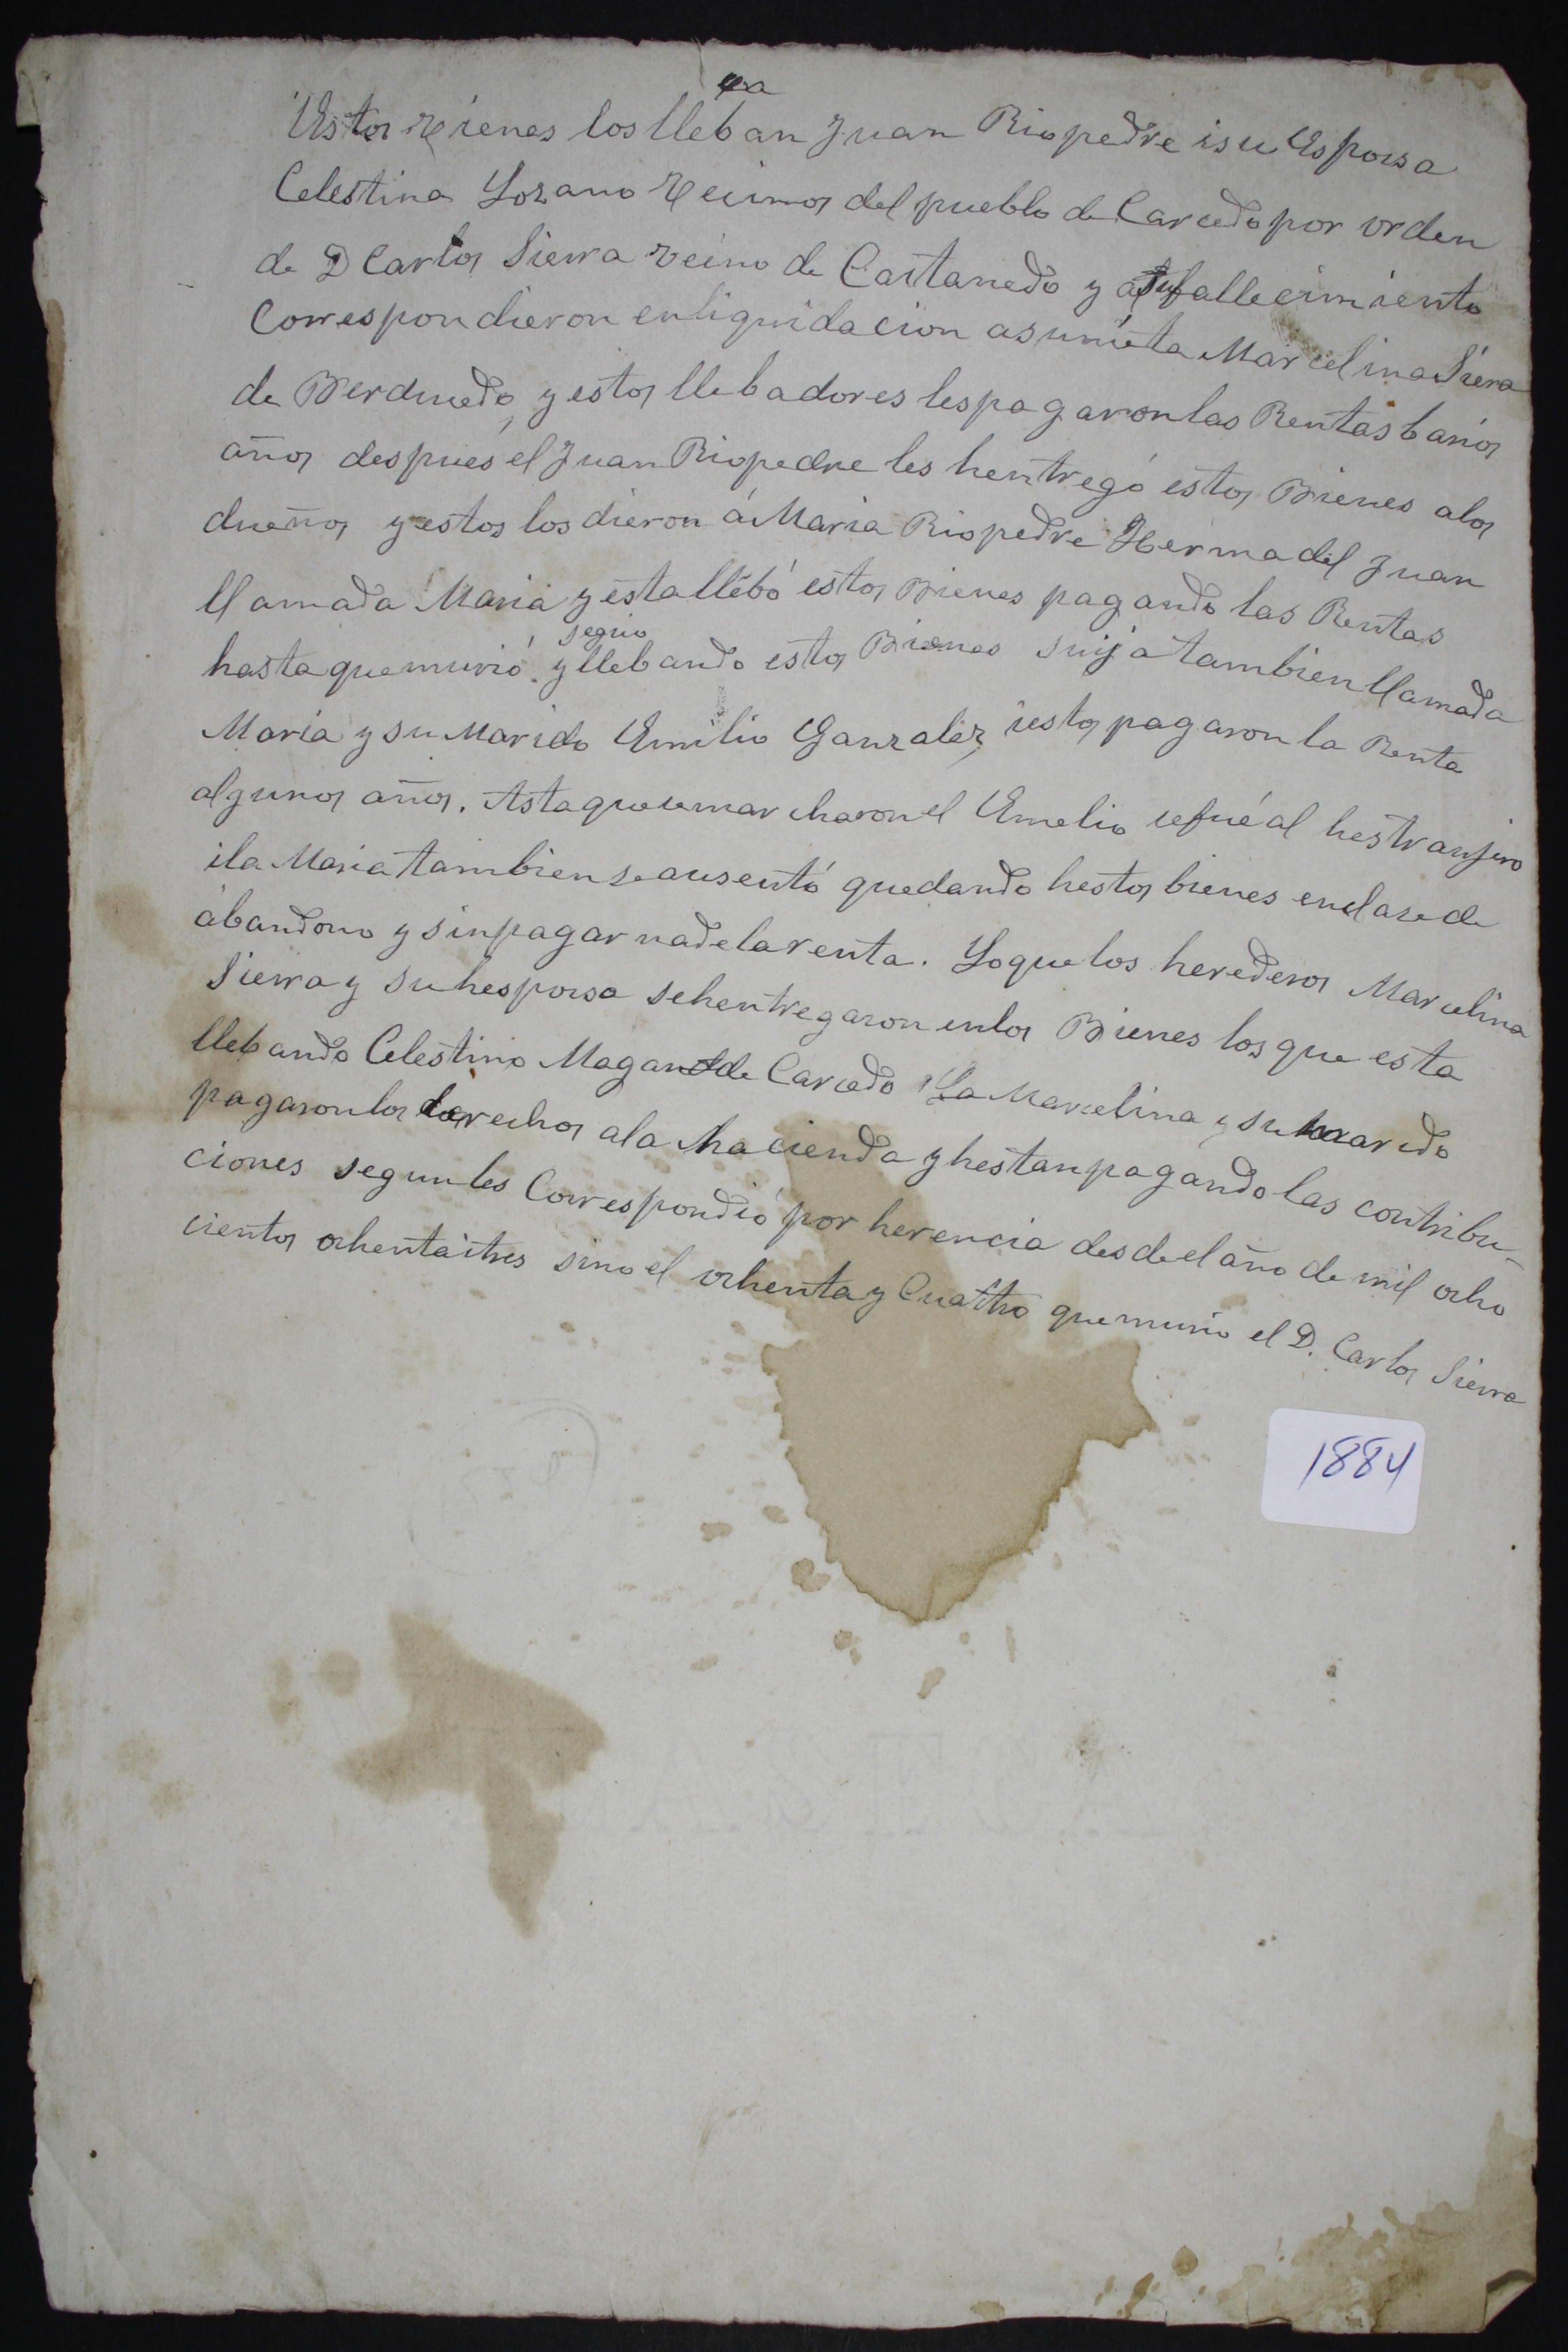 Estos Bienes los lleban Juan Riopedre isu Esposa
Celestina Lozano Vecinos del pueblo de Carcedo por orden
de D Carlos Sierra vecino de Castanedo y a su fallecimiento
Correspondieron enliquidacion asunieta Marcelina Siera
de Berducedo, y estos llebadores lespagaron las Rentas barios
años despues el Juan Riopedre les hentregó estos Bienes alos
dueños y estos los dieron á Maria Riopedre Herma del Juan
llamada Maria y esta llebó estos Bienes pagando las Rentas
hasta que murió. y seguio llebando estos Bienes suija tambien llamada
Maria y su Marido Emilio Ganzalez, iestos pagaron la Renta
algunos años. Astaquesemarcharon el Emelio sefué al hestranjero
ila Maria tambien seausentó quedando hestos bienes enclase de
ábandono y sinpagar nadelarenta. Loque los herederos Marcelina
Sierra y su hesposo sehentregaron enlos Bienes los que esta
llebando Celestino Magan de Carcedo La Marcelina y su marido
pagaron los derechos ala hacienda y hestan pagando las contribu-
ciones segun les Correspondió por herencia desde el año de mil ocho
cientos ochentaitres sino el ochenta y Cuattro que murio el D. Carlos Sierra
1884